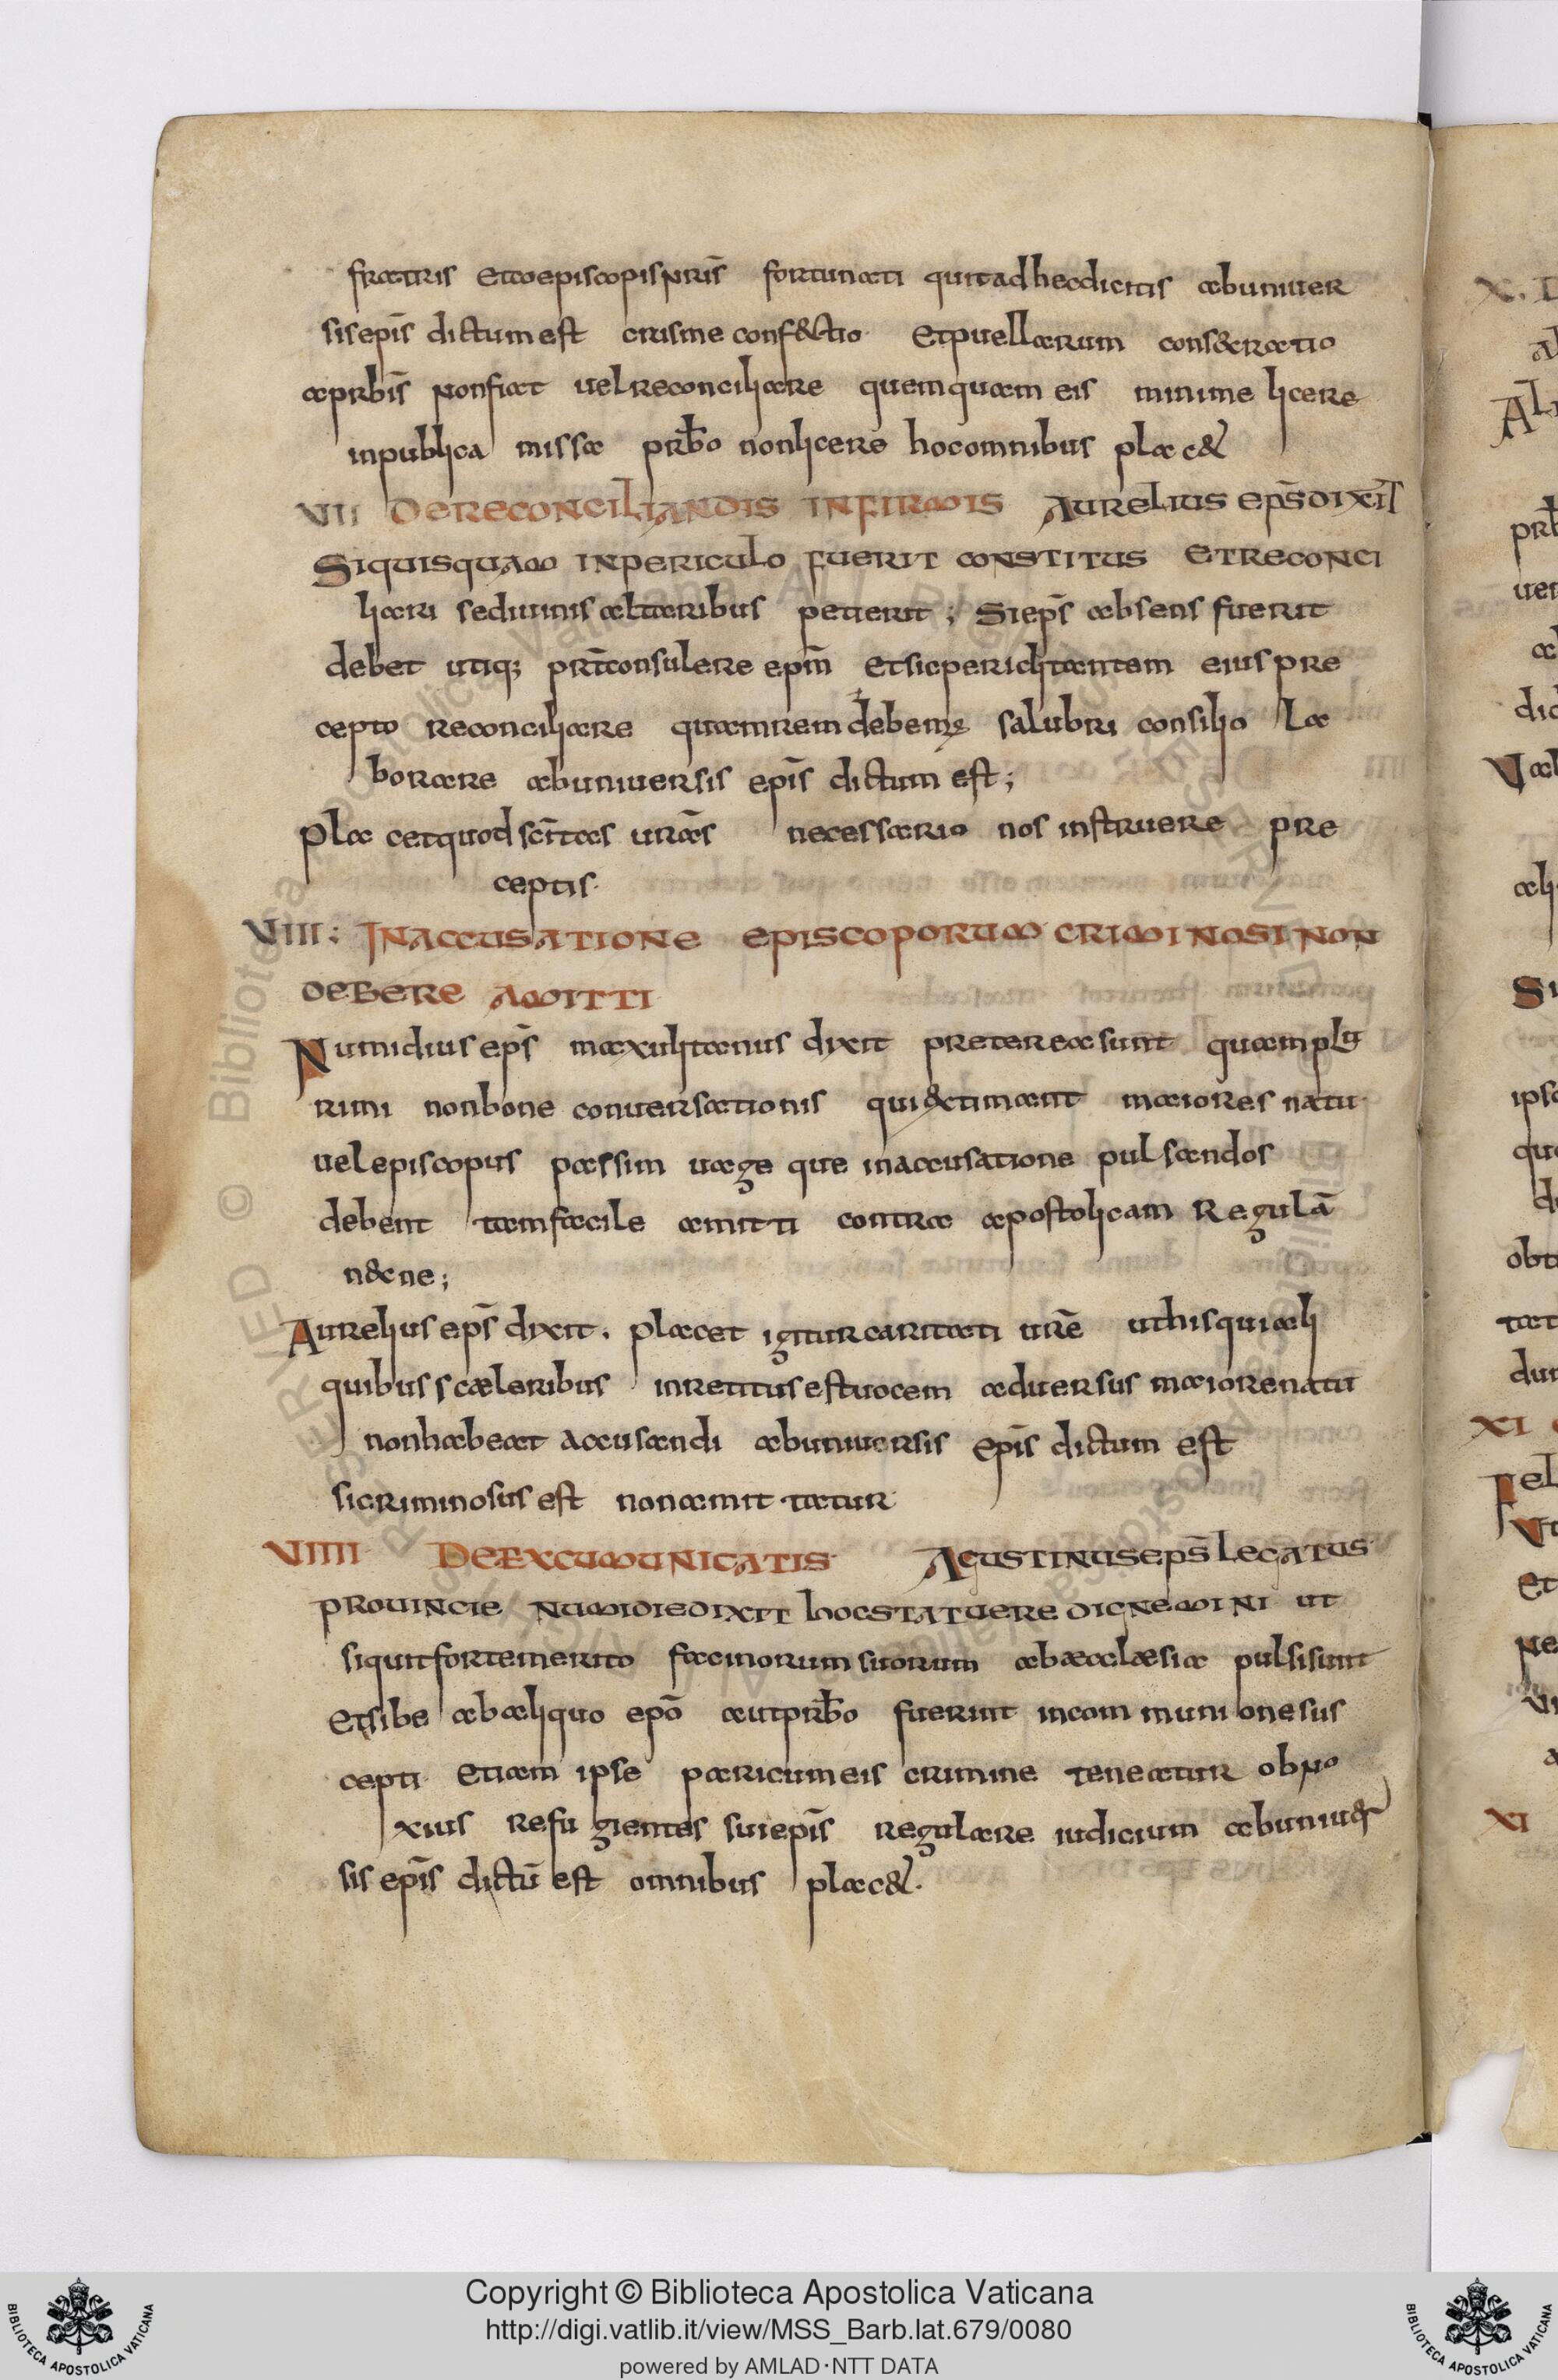 fratris et coepiscopis nr̄is fortunati quit ad hec dicitis ab uniuer
sis ep̄is dictum est crisme conf&ctio et puellarum cons&cratio
a prb̄is non fiat uel reconciliare quemquam eis minime licere
in publica missa prb̄o non licere hoc omnibus plac&
VII DE RECONCILIANDIS INFIRMIS AURELIUS EP̄S DIXIT
SI QUISQUAM IN PERICULO FUERIT CONSTITUS ET RECONCI
liari se diuinis altaribus petierit ; Si ep̄s absens fuerit
debet utiq; prt̄ consulere ep̄m et sic periclitantem eius pre
cepto reconciliare quam rem debemus salubri consilio la
borare ab uniuersis ep̄is dictum est ;
placet quod sc̄itas ur̄as necessario nos instruere pre
ceptis·
VIII : IN ACCUSATIONE EPISCOPORUM CRIMINOSI NON
DEBERE AMITTI
Numidius ep̄s maxulitanus dixit preterea sunt quam plu
rimi non bone conuersationis qui &ctimant maiores natu·
uel episcopus passim uage que in accusatione pulsandos
debent tam facile amitti contra apostolicam regulā
n&cne ;
Aurelius ep̄s dixit . placet igitur caritati ur̄e ut his qui ali
quibus scæleribus inretitus est uocem aduersus maiore natu
non habeat accusandi ab uniuersis ep̄is dictum est
si criminosus est non amittatur
VIIII DE EXCUMUNICATIS· AGUSTINUS EP̄S LEGATUS
PROUINCIE NUMIDIE DIXIT HOC STATUERE DIGNEMINI UT
si quit forte merito facinorum suorum ab æcclæsia pulsi sunt
et sibe ab aliquo ep̄o aut prb̄o fuerint in communione sus
cepti etiam ipse pari cum eis crimine teneatur obno
xius refugientes sui ep̄is regulare iudicium ab uniu&r
sis ep̄is dictū est omnibus plac&.
Copyright © Biblioteca Apostolica Vaticana
http://digi.vatlib.it/view/MSS_Barb.lat.679/0080
powered by AMLAD·NTT DATA